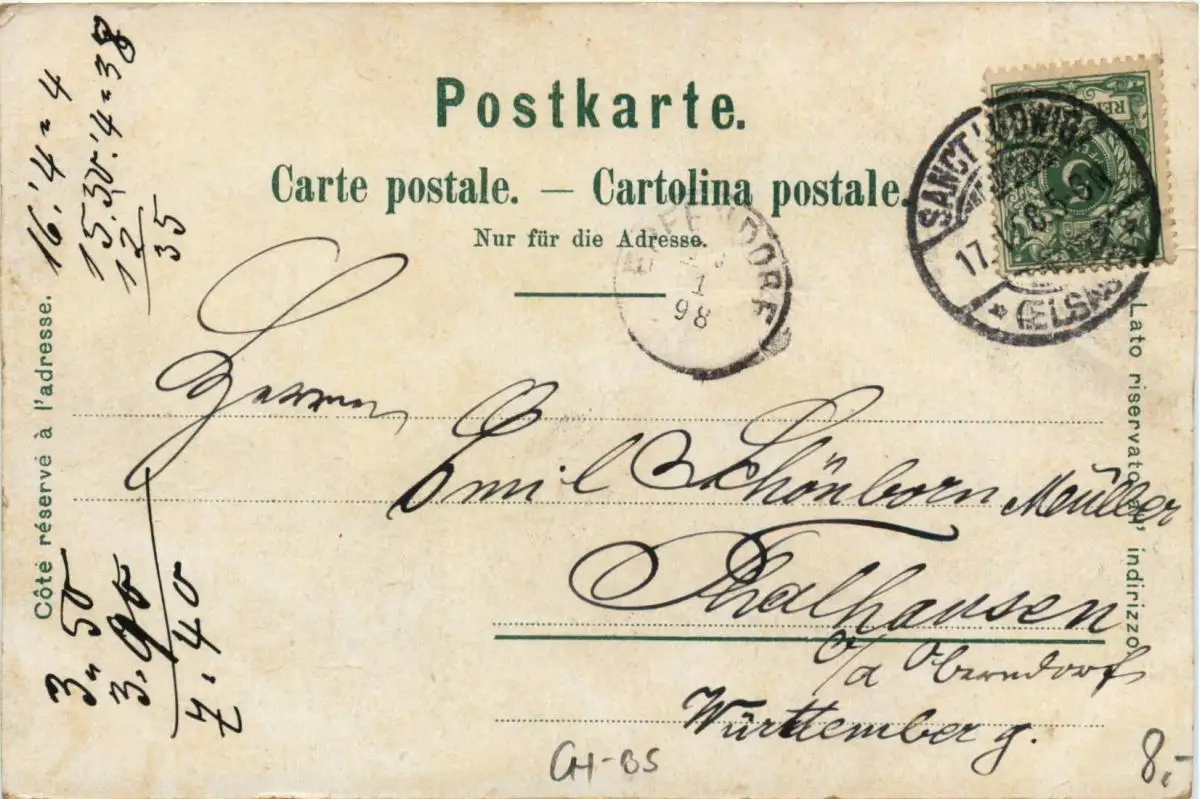 Postkarte.
Carte postale. — Cartolina postale.
Nur für die Adresse.
Côté réservé à l'adresse.
Lato riservato all' indirizzo
SANCT LUDWIG
17.
5-6N
* (ELSASS)
REI
5
EPFENDORF
1
98
Herrn
Emil Schönborn Müller
Thalhausen
o/a Oberndorf
Württemberg.
16.'4=4
15.30.'4=38
12
35
3.50
3.90
7.40
CH-BS
8,-